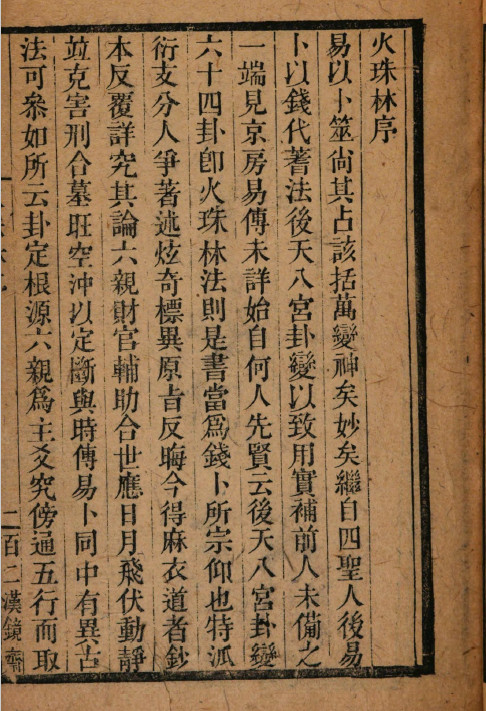 火珠林序
易以卜筮尙其占該括萬變神矣妙矣繼自四聖人後易
卜以錢代蓍法後天八宮卦變以致用實補前人未備之
一端見京房易傳未詳始自何人先賢云後天八宮卦變
六十四卦卽火珠林法則是書當爲錢卜所宗仰也特派
衍支分人爭著述炫奇標異原旨反晦今得麻衣道者鈔
本反覆詳究其論六親財官輔助合世應日月飛伏動靜
竝克害刑合墓旺空沖以定斷與時傳易卜同中有異古
法可叅如所云卦定根源六親爲主爻究傍通五行而取
二百二漢鏡齋